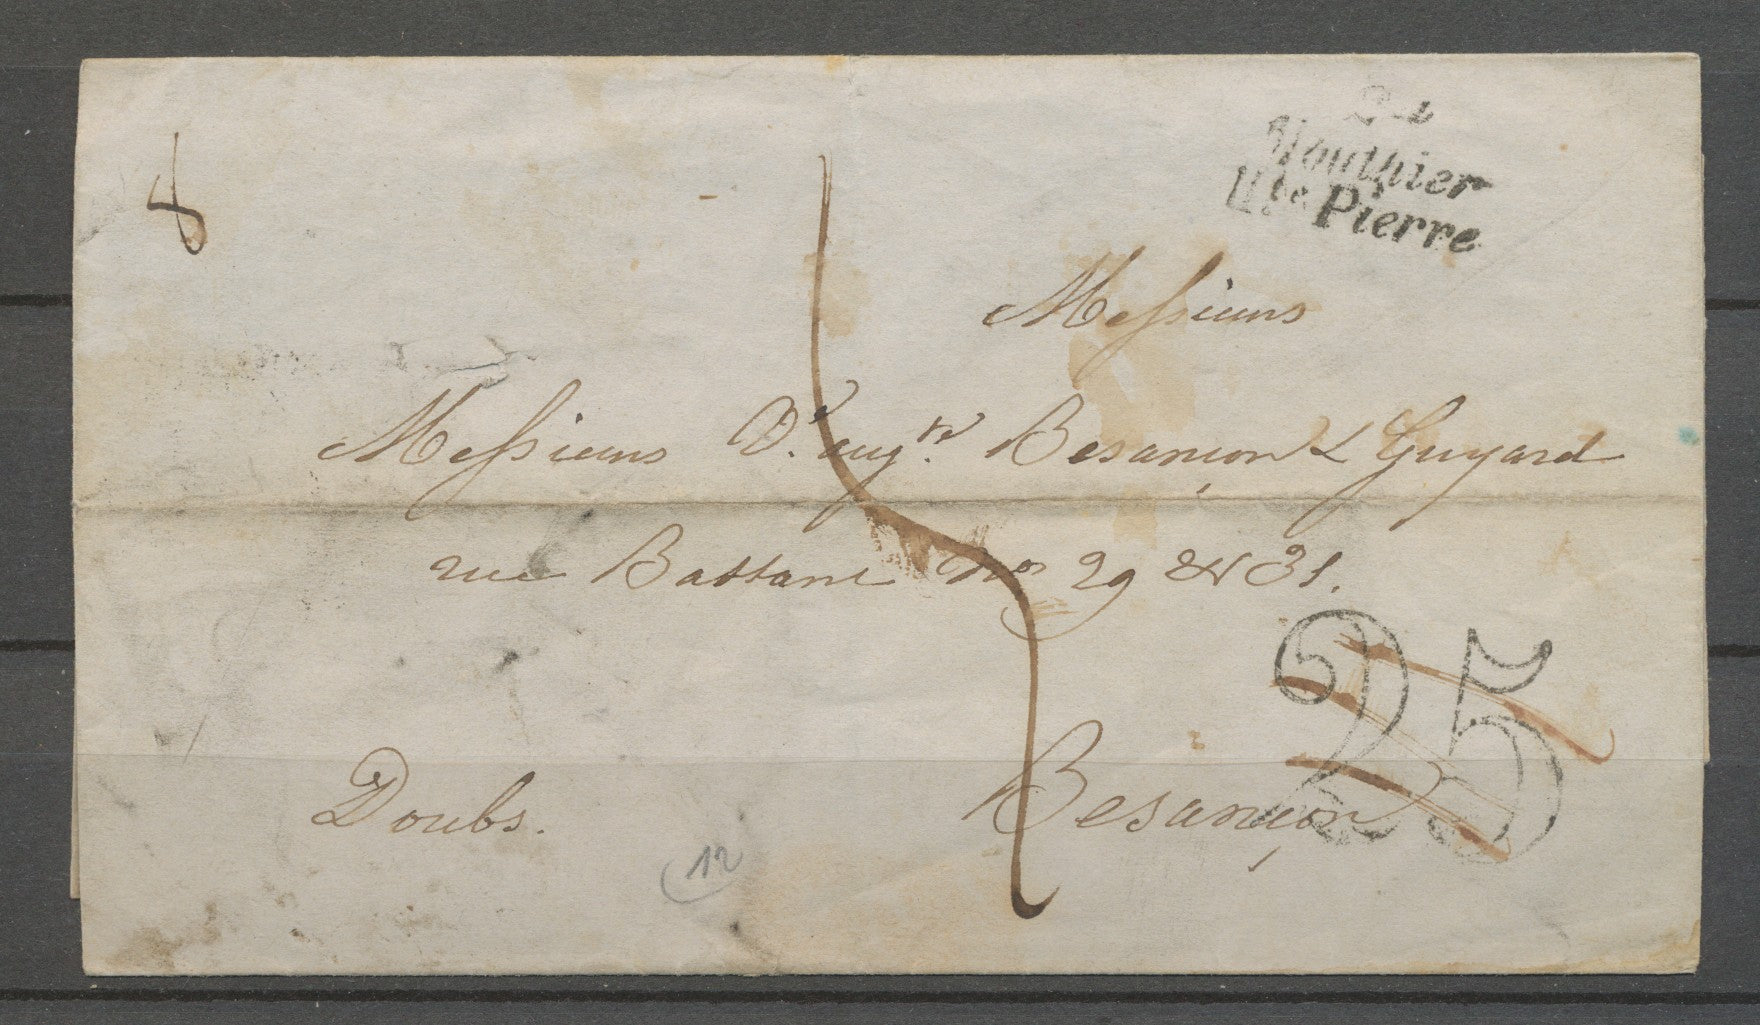 8
24
Mouthier
Hte Pierre
Messieurs
Messieurs D. augte Besançon & Guyard
rue Battant Nos 29 & 31.
25
Doubs. Besançon
12